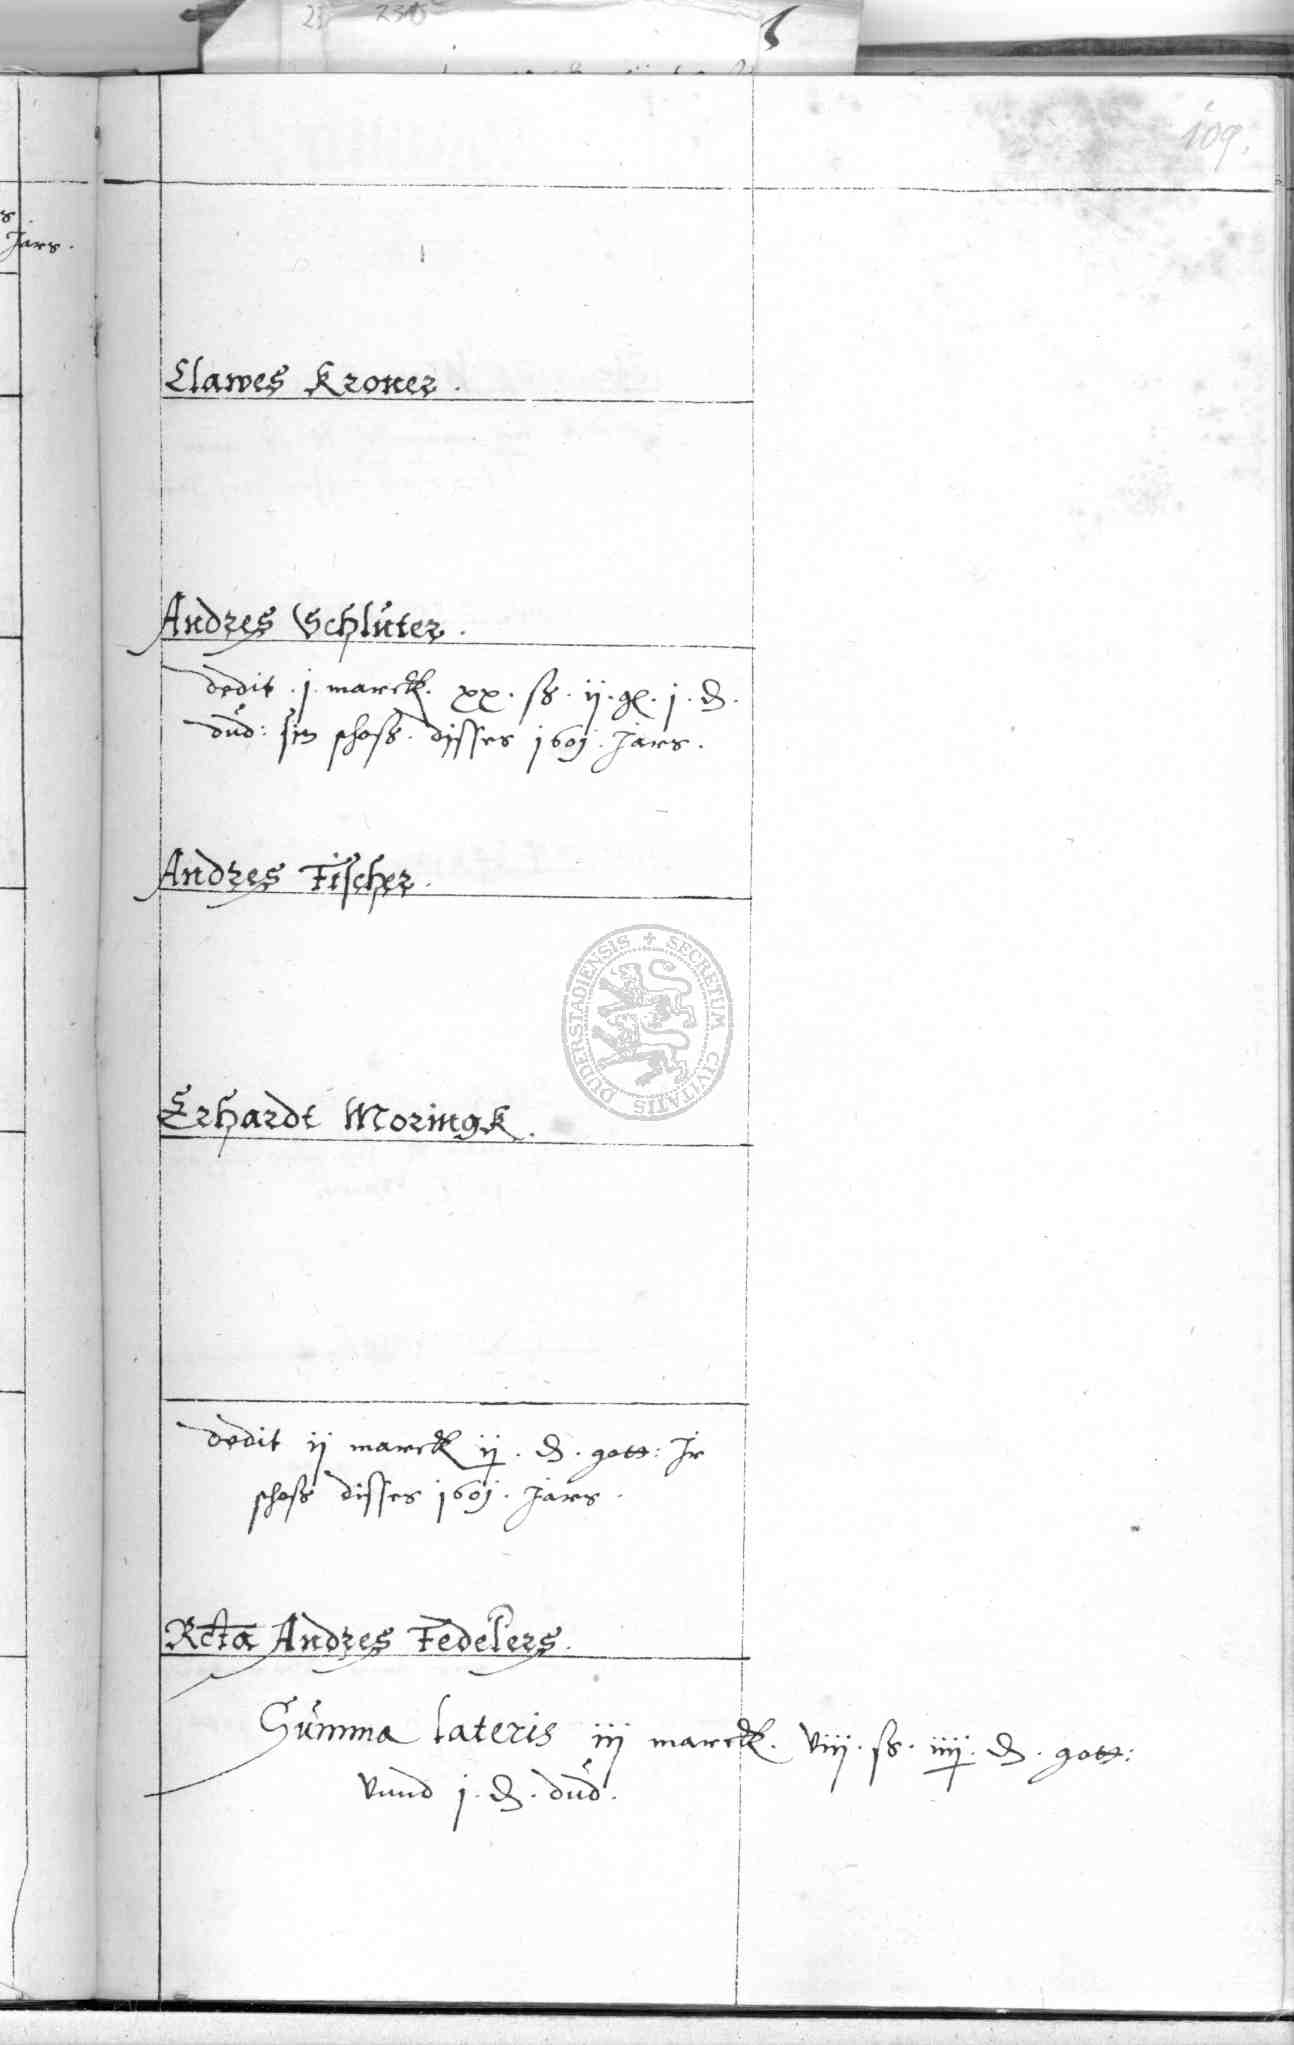 23 230
109.
s
Jars.
Clawes Kroner.
Andres Schlüter.
dedit. j. marck. xx. ß. ij. gl. j. ₰.
dud: sin schoß. disses 1601. Jars.
Andres Fischer.
DUDERSTADIENSIS + SECRETUM CIVITATIS
Erhardt Moringk.
dedit ij marck ij. ₰. gott: Jr
schoß disses 1601. Jars.
Rcta Andres Fedelers.
Summa lateris iij marck. viij. ß. iiij. ₰. gott:
vnnd j. ₰. dud.